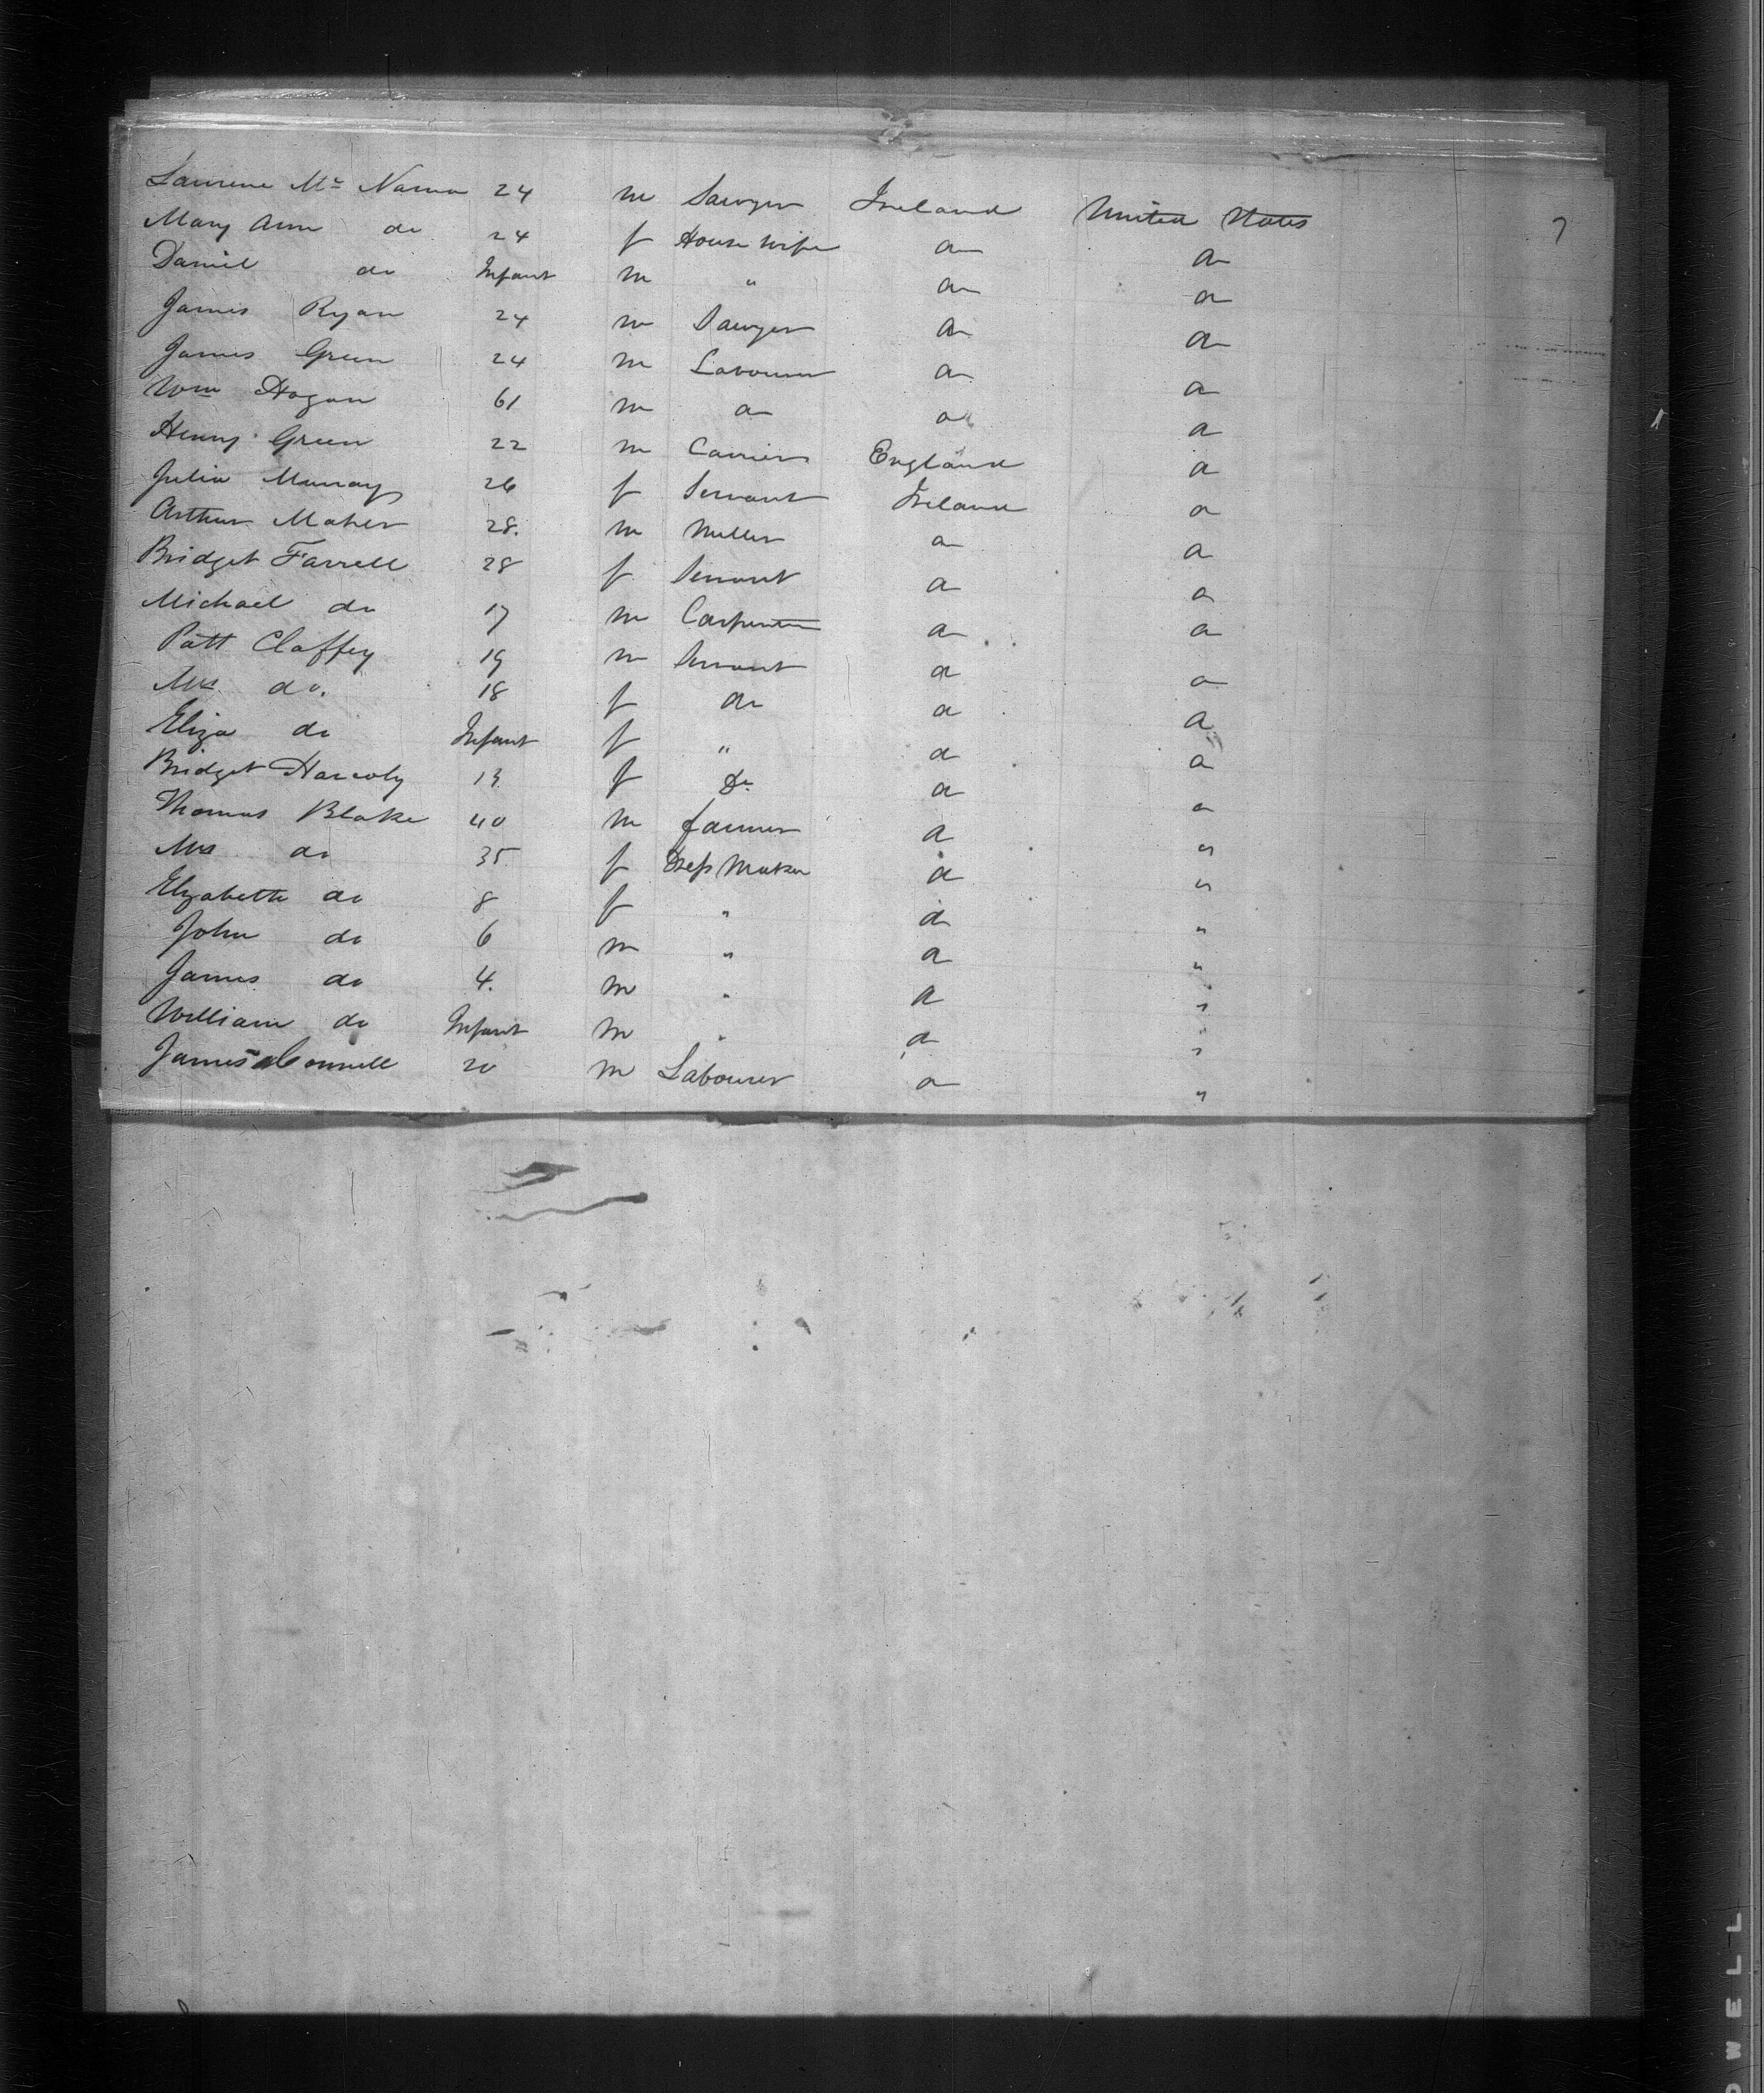 Laurence Mc Nama 24 m Sawyer Ireland United States 7
Mary Ann do 24 f House wife do do
Daniel do Infant m " do do
James Ryan 24 m Sawyer do do
James Green 24 m Labourer do do
Wm Hogan 61 m do do do
Henry Green 22 m Carrier England do
Julia Murray 26 f Servant Ireland do
Arthur Maher 28. m Miller do do
Bridget Farrell 28 f Servant do do
Michael do 17 m Carpenter do do
Patt Claffey 19 m Servant do do
Mrs do. 18 f do do do
Eliza do Infant f " do do
Bridget 13 f Do do do
Thomas Blake 40 m farmer do "
Mrs do 35 f Dress Maker do "
Elizabeth do 8 f " do "
John do 6 m " do "
James do 4. m " do "
William do Infant m " do "
James Connell 20 m Labourer do "